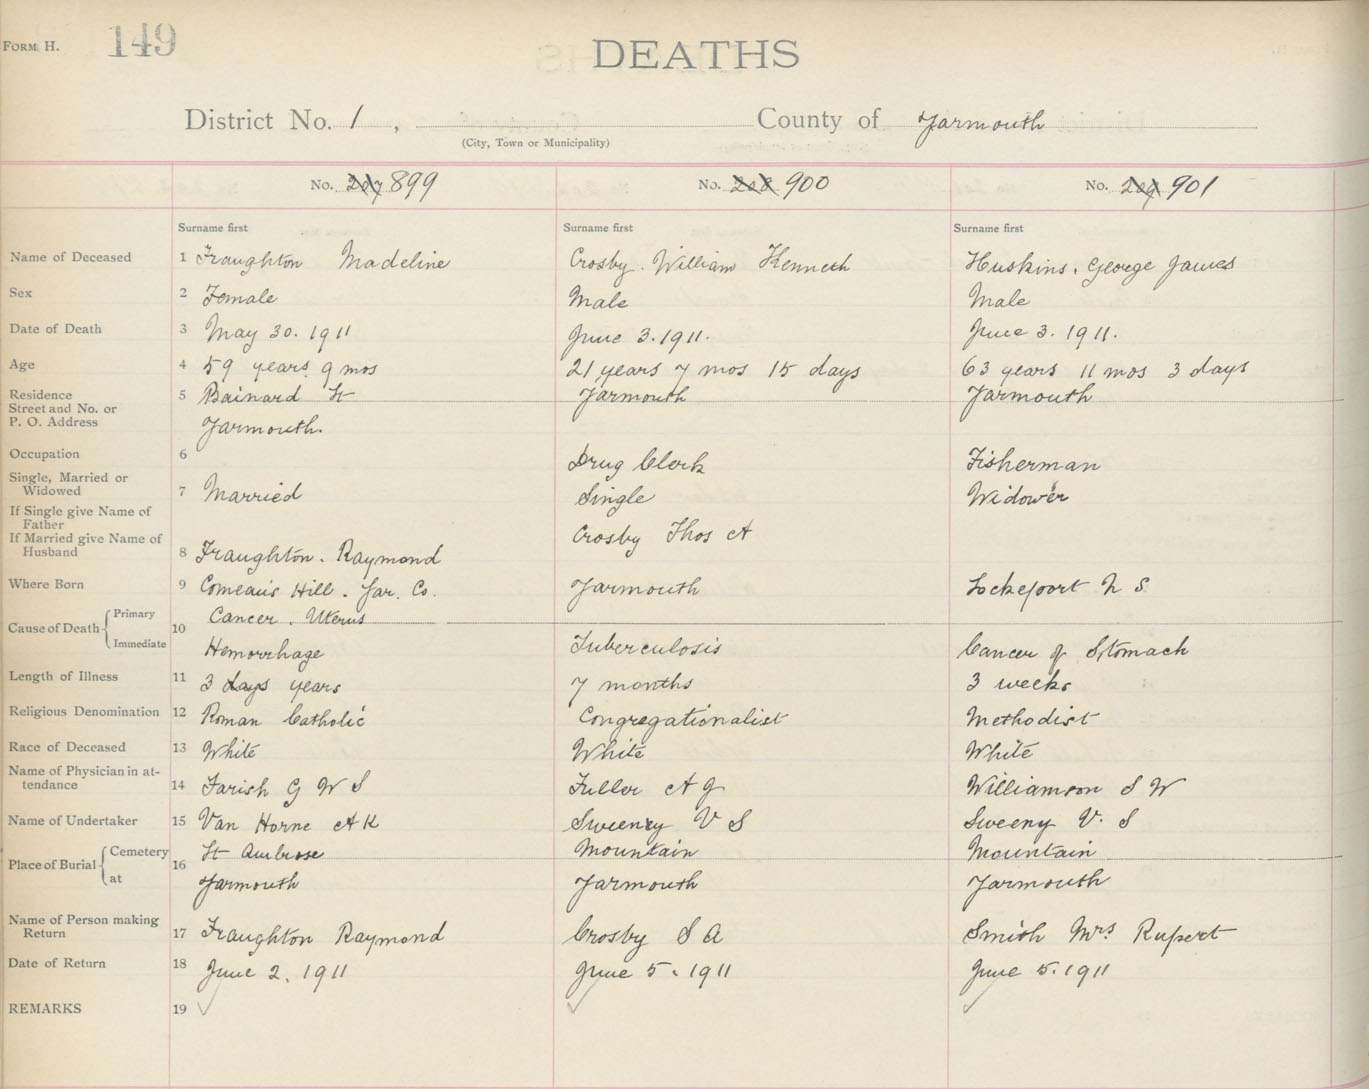 FORM H. 149
DEATHS
District No. 1 , County of Yarmouth
(City, Town or Municipality)
No. 207 899 No. 208 900 No. 209 901
Surname first Surname first Surname first
Name of Deceased 1 Fraughton Madeline Crosby. William Kenneth Huskins, George James
Sex 2 Female Male Male
Date of Death 3 May 30. 1911 June 3. 1911. June 3. 1911.
Age 4 59 years 9 mos 21 years 7 mos 15 days 63 years 11 mos 3 days
Residence 5 Bainard St Yarmouth Yarmouth
Street and No. or
P. O. Address Yarmouth.
Occupation 6 Drug Clerk Fisherman
Single, Married or
Widowed 7 Married Single Widower
If Single give Name of
Father Crosby Thos A
If Married give Name of
Husband 8 Fraughton. Raymond
Where Born 9 Comeau's Hill. Yar. Co. Yarmouth Lockeport N S
Cause of Death Primary 10 Cancer. Uterus
Immediate Hemorrhage Tuberculosis Cancer of Stomach
Length of Illness 11 3 days years 7 months 3 weeks
Religious Denomination 12 Roman Catholic Congregationalist Methodist
Race of Deceased 13 White White White
Name of Physician in at-
tendance 14 Farish G W S Fuller A J Williamson S W
Name of Undertaker 15 Van Horne A K Sweeney V S Sweeny V. S
Place of Burial Cemetery 16 St Ambrose Mountain Mountain
at Yarmouth Yarmouth Yarmouth
Name of Person making
Return 17 Fraughton Raymond Crosby S A Smith Mrs Rupert
Date of Return 18 June 2. 1911 June 5. 1911 June 5. 1911
REMARKS 19